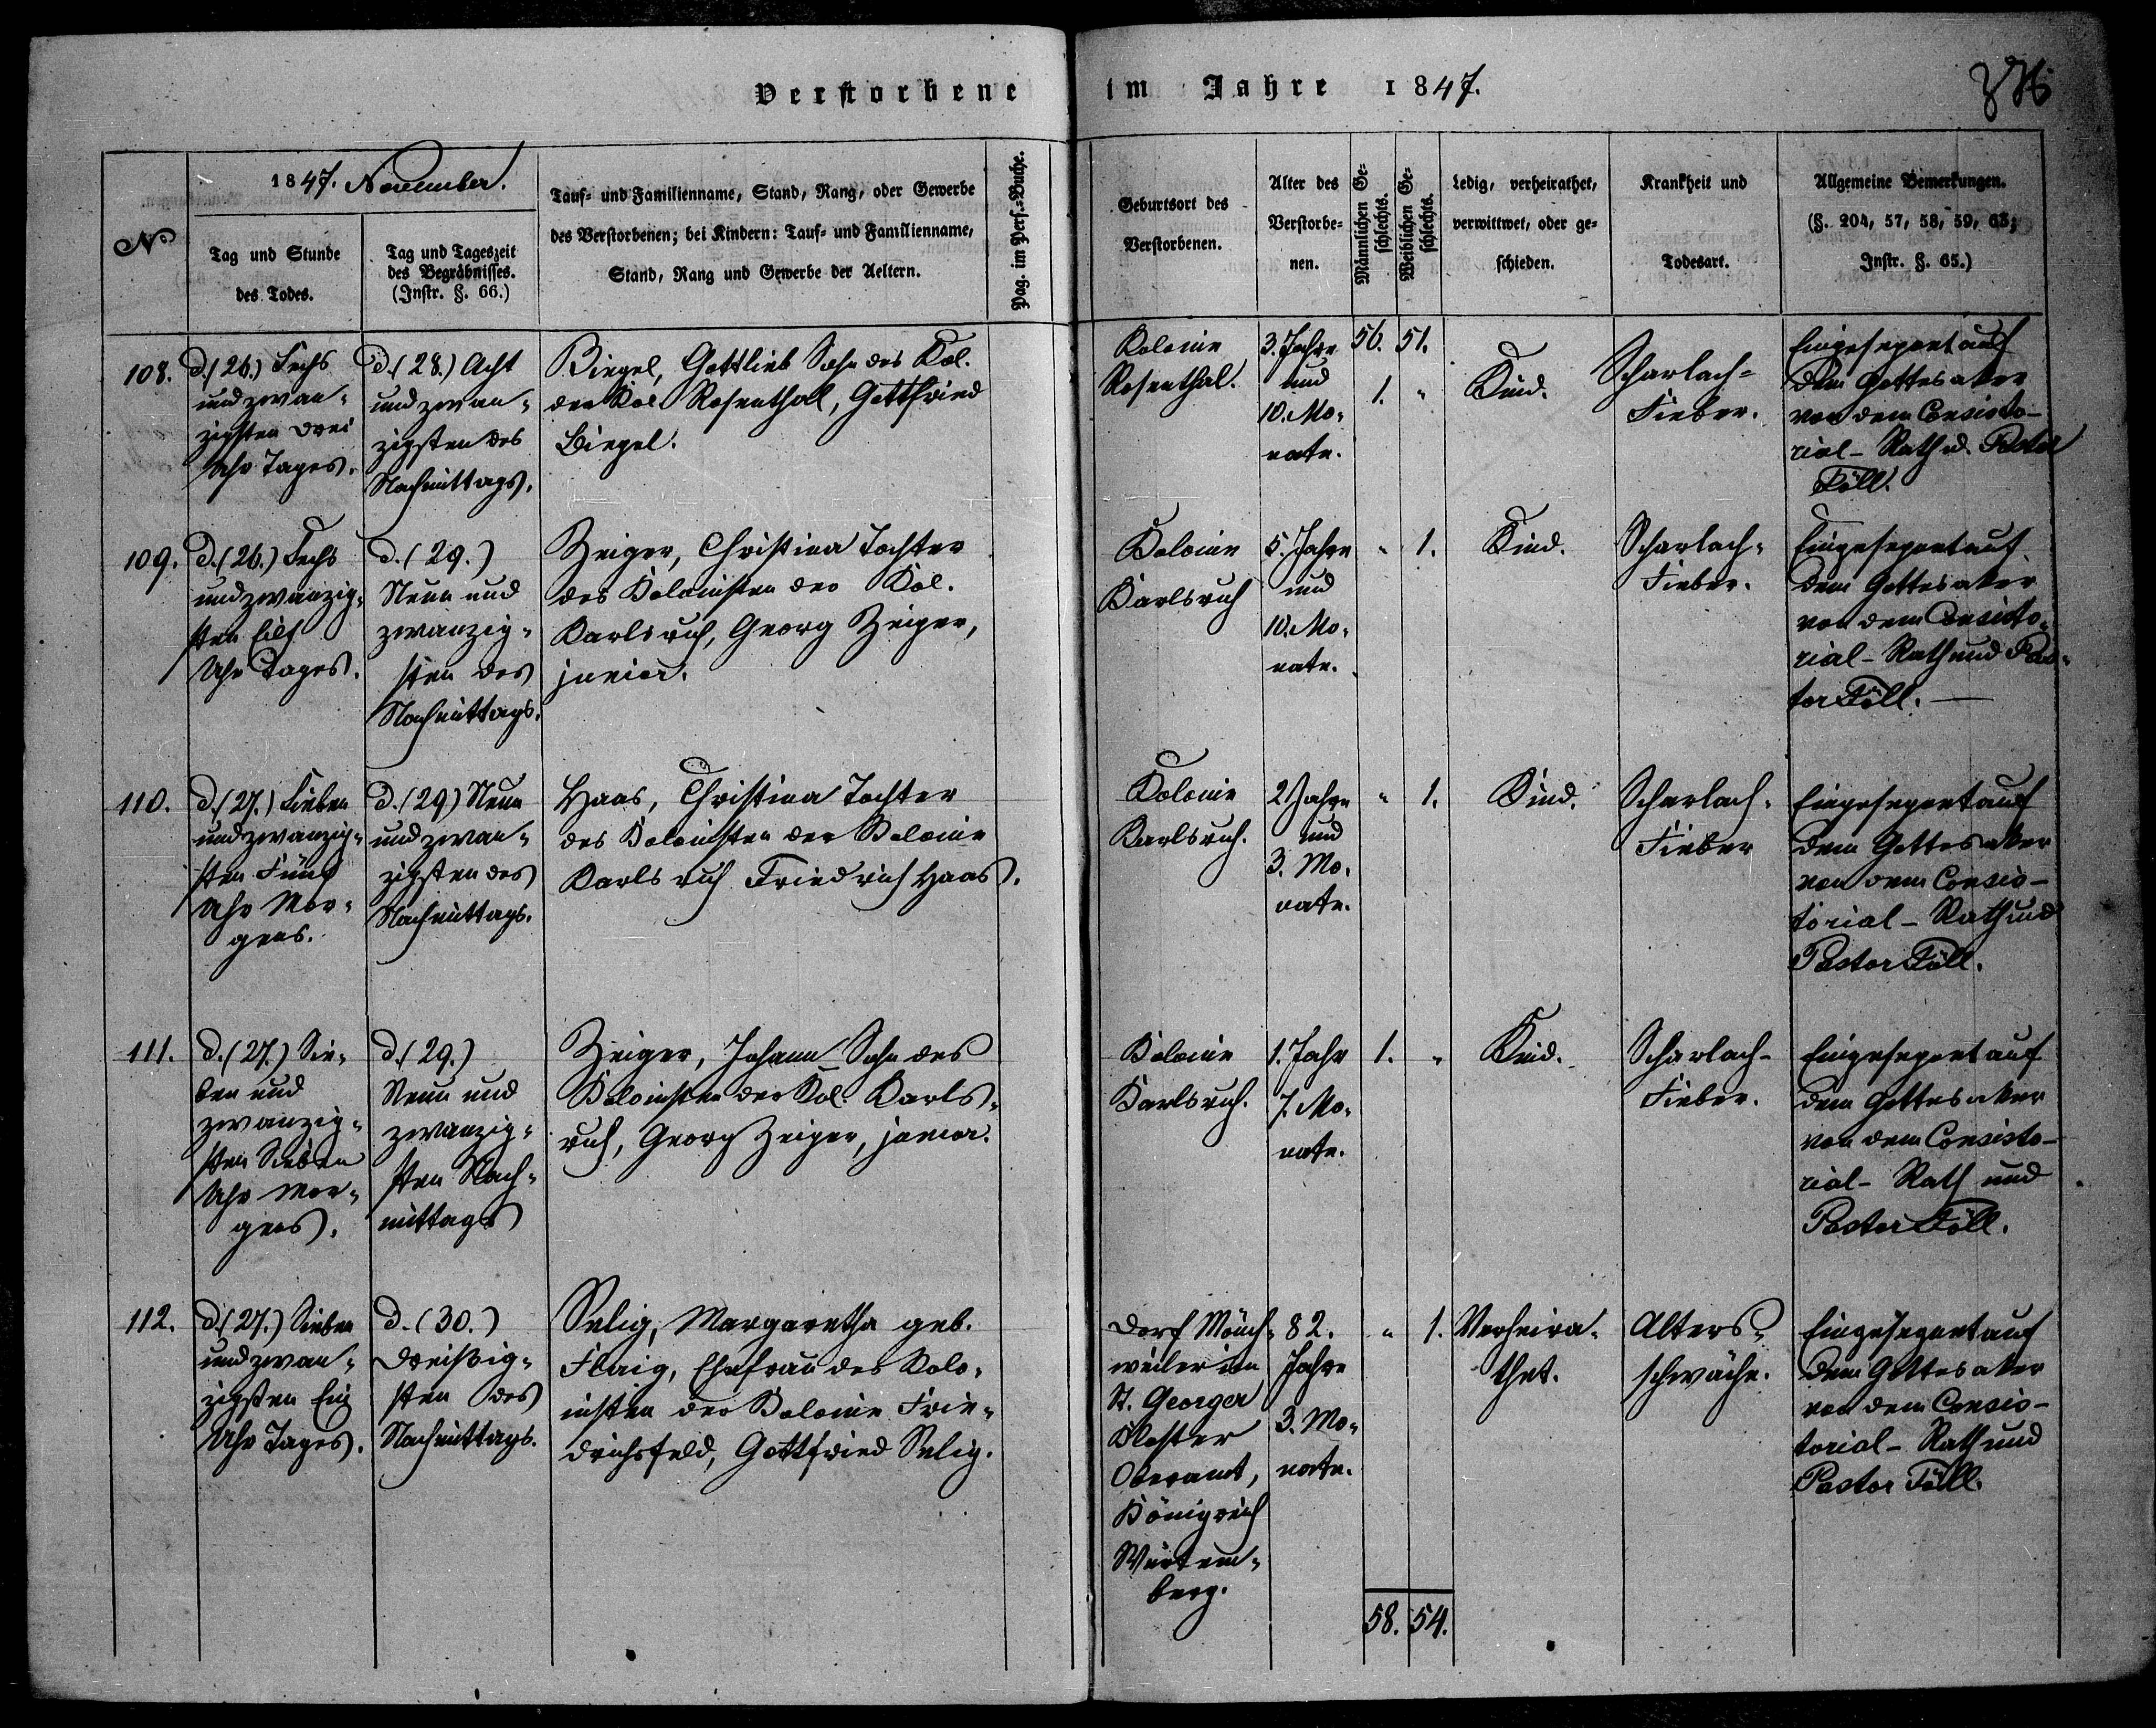 Verstorbene im Jahre 1847.
No
1847. November.
Tag und Stunde
des Todes.
Tag und Tageszeit
des Begräbnisses.
(Instr. §. 66.)
Tauf- und Familienname, Stand, Rang, oder Gewerbe
des Verstorbenen; bei Kindern: Tauf- und Familienname,
Stand, Rang und Gewerbe der Aeltern.
Pag. im Pers.-Buche.
Geburtsort des
Verstorbenen.
Alter des
Verstorbe-
nen.
Männlichen Ge-
schlechts.
Weiblichen Ge-
schlechts.
Ledig, verheirathet,
verwittwet, oder ge-
schieden.
Krankheit und
Todesart.
Allgemeine Bemerkungen.
(§. 204, 57, 58, 59, 63;
Instr. §. 65.)
108.
d. (26.) Sechs
und zwan-
zigsten Drei
Uhr Tages.
d. (28.) Acht
und zwan-
zigsten des
Nachmittags.
Biegel, Gottlieb Sohn des Kol.
der Kol Rosenthal, Gottfried
Biegel.
Kolonie
Rosenthal.
3. Jahre
und
10. Mo-
nate.
56. 51.
1. "
Kind.
Scharlach-
Fieber.
Eingesegnet auf
dem Gottesaker
von dem Consisto-
rial-Rath u. Pastor
Föll.
109.
d. (26.) Sechs
und zwanzig-
sten Eilf
Uhr Tages.
d. (29.)
Neun und
zwanzig-
sten des
Nachmittags.
Zeiger, Christina Tochter
des Kolonisten der Kol.
Karlsruh, Georg Zeiger,
junior.
Kolonie
Karlsruh
5. Jahre
und
10. Mo-
nate.
" 1.
Kind.
Scharlach-
Fieber.
Eingesegnet auf
dem Gottesaker
von dem Consisto-
rial-Rath und Pas-
tor Föll.
110.
d. (27.) Sieben
und zwanzig-
sten Fünf
Uhr Mor-
gens.
d. (29) Neun
und zwan-
zigsten des
Nachmittags.
Haas, Christina Tochter
des Kolonisten der Kolonie
Karlsruh Friedrich Haas.
Kolonie
Karlsruh.
2 Jahre
und
3. Mo-
nate.
" 1.
Kind.
Scharlach-
Fieber
Eingesegnet auf
dem Gottesaker
von dem Consis-
torial-Rath und
Pastor Föll.
111.
d. (27.) Sie-
ben und
zwanzig-
sten Sieben
Uhr Mor-
gens.
d. (29.)
Neun und
zwanzig-
sten Nach-
mittags
Zeiger, Johann Sohn des
Kolonisten der Kol. Karls-
ruh, Georg Zeiger, junior.
Kolonie
Karlsruh.
1. Jahr
7. Mo-
nate.
1. "
Kind.
Scharlach-
Fieber.
Eingesegnet auf
dem Gottesaker
von dem Consisto-
rial-Rath und
Pastor Föll.
112.
d. (27.) Sieben
und zwan-
zigsten Ein
Uhr Tages.
d. (30.)
Dreißig-
sten des
Nachmittags.
Selig, Margaretha geb.
Flaig, Ehefrau des Kolo-
nisten der Kolonie Frie-
drichsfeld, Gottfried Selig.
Dorf Mönch-
weiler im
St. Georger
Kloster
Oberamt,
Königreich
Würtem-
berg.
82.
Jahre
3. Mo-
nate.
" 1.
Verheira-
thet.
Alters-
schwäche.
Eingesegnet auf
dem Gottesaker
von dem Consis-
torial-Rath und
Pastor Föll.
58. 54.